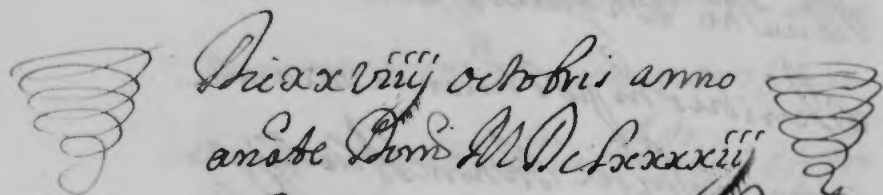 Die xxviiij octobris anno
a nåte Domⁱ MDclxxxxiij